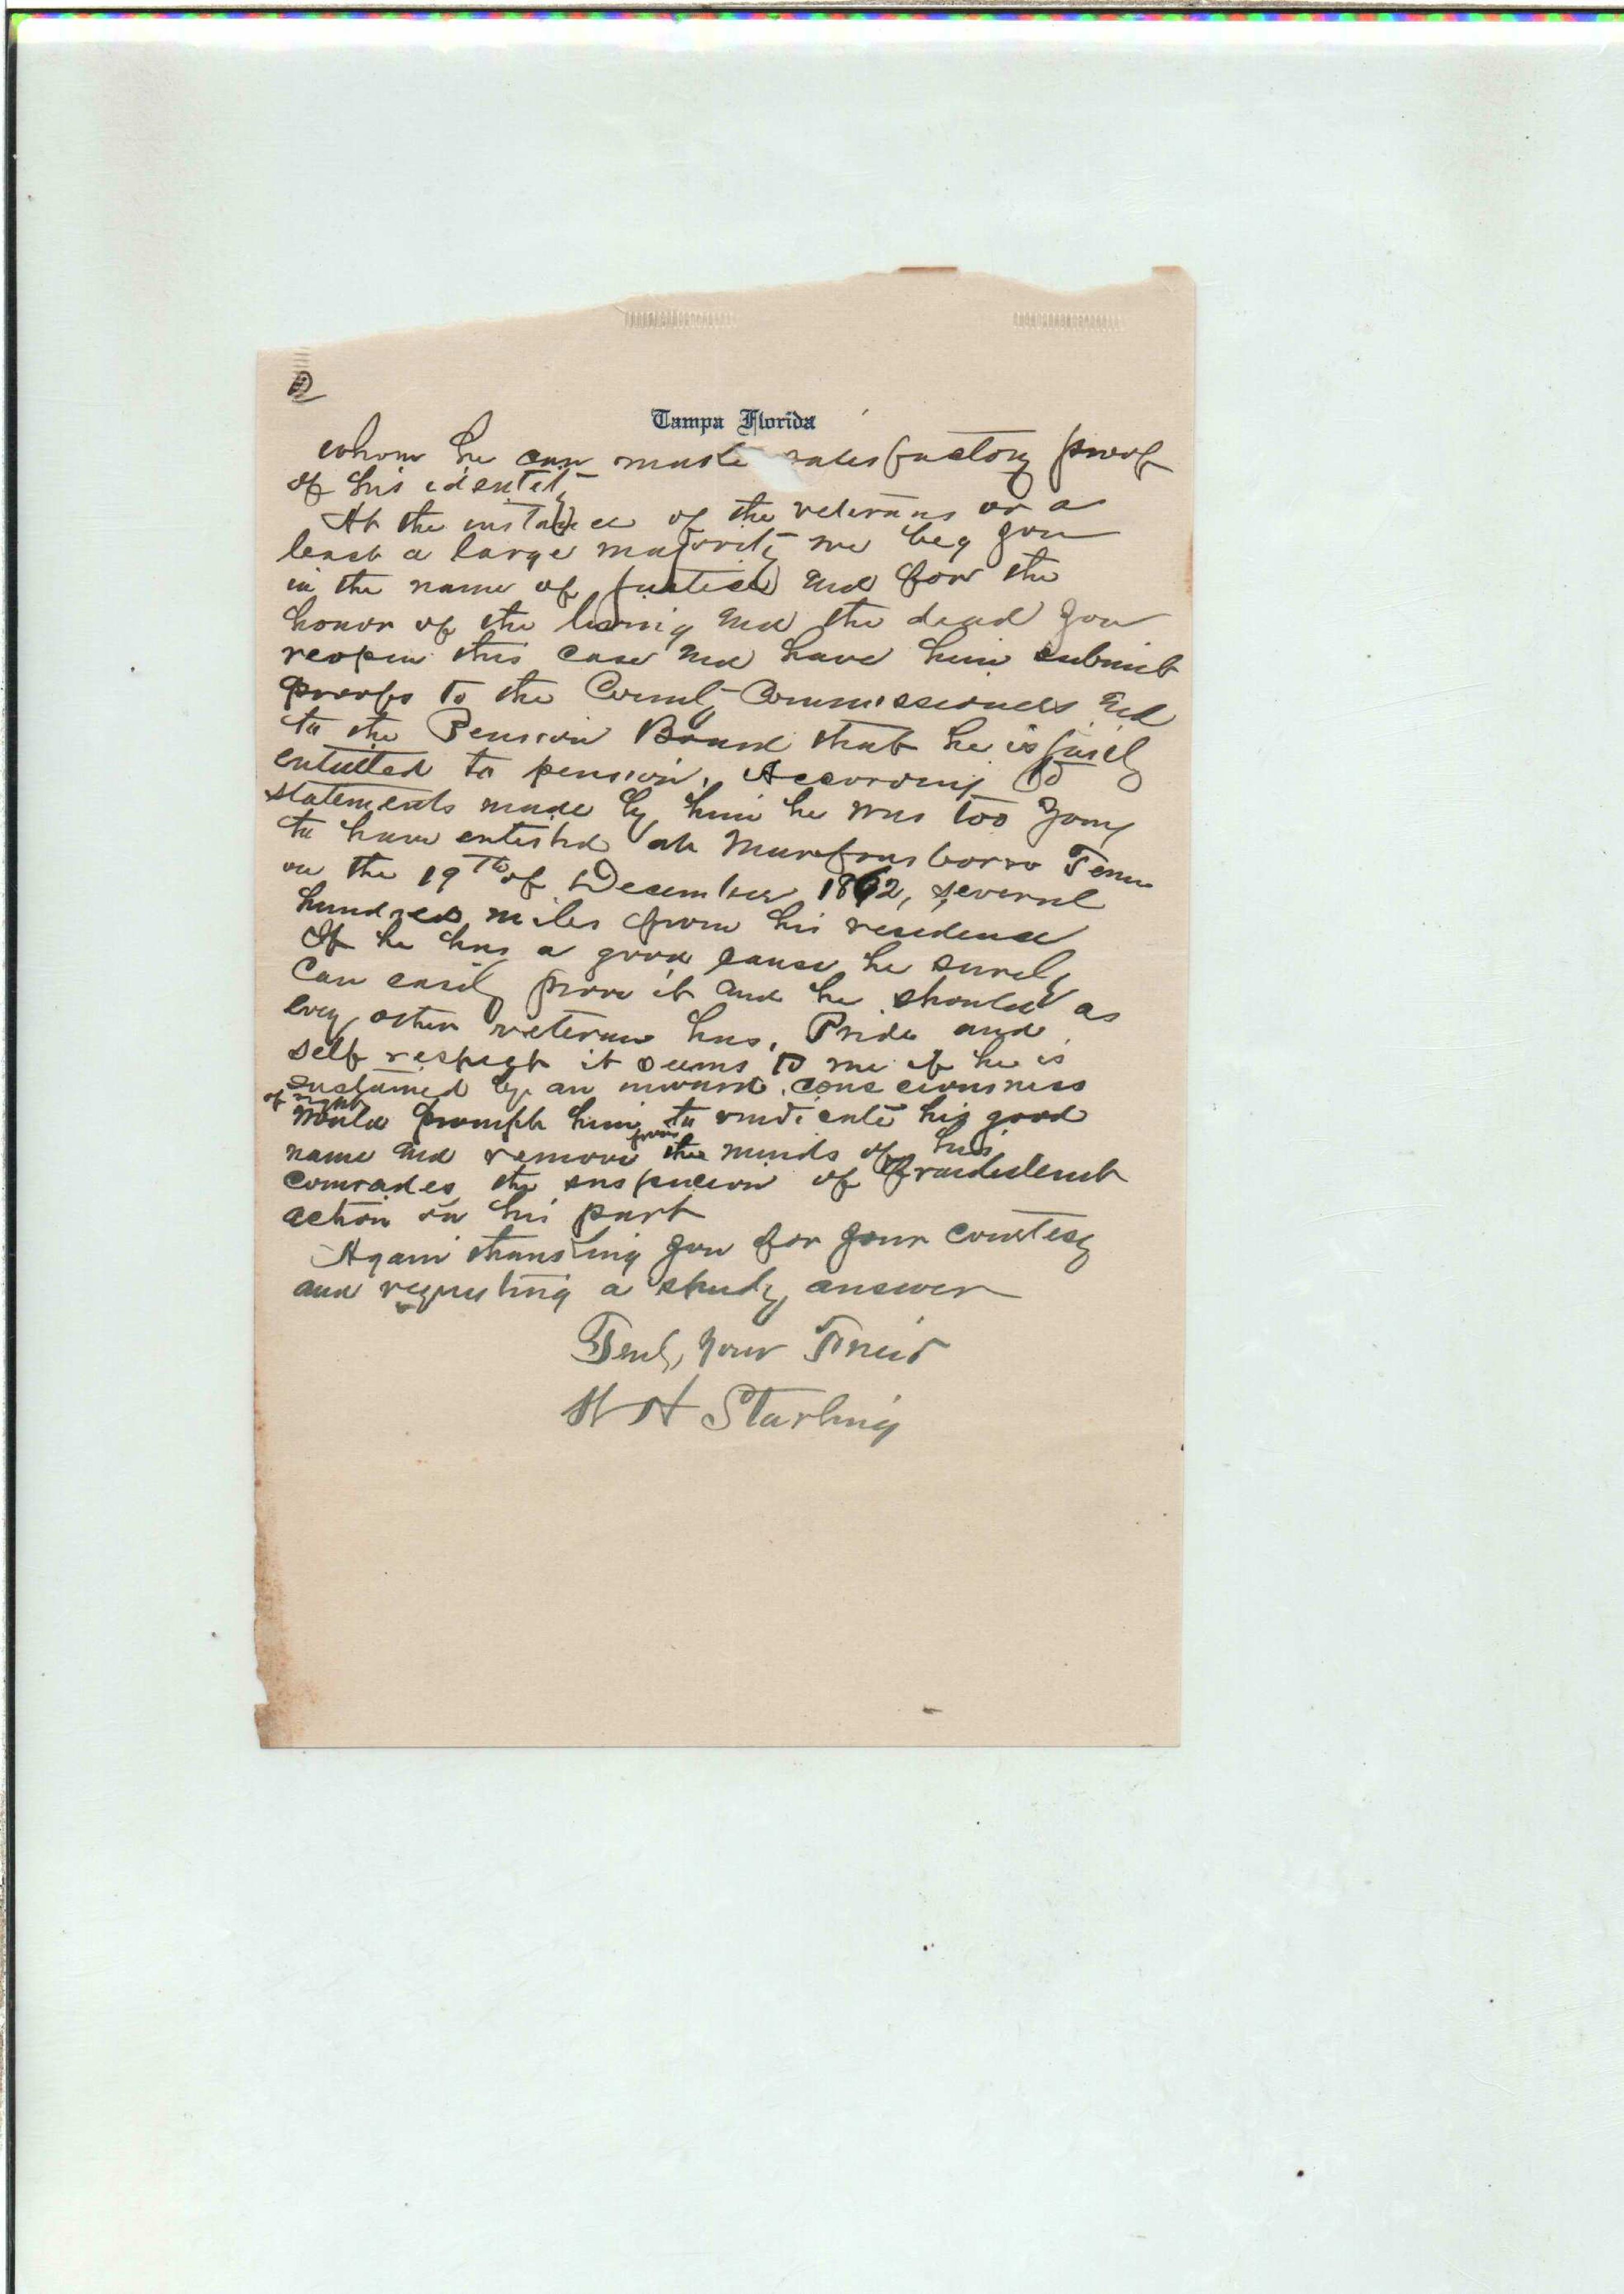 2
Tampa Florida
whom he can make satisfactory proof
of his identity
At the instance of the veterans or a
least a large majority we beg you
in the name of justice and for the
honor of the living and the dead you
reopen this case and have him submit
proofs to the County Commissioners and
to the Pension Board that he is justly
entitled to pension. According to
statements made by him he was too young
to have enlisted at Murefrusborro Tenn
on the 19th of December 1862, several
hundred miles from his residence
If he has a good cause he surely
can easily prove it and he should as
evey other veteran has. Pride and
self respect it seems to me if he is
sustained by an inward consciousness
of right
would prompt him to vindicate his good
name and remove from the minds of his
comrades the suspicion of fraudulent
action on his part
Again thanking you for your courtesy
and requesting a speedy answer
Truly your Friend
W H Starling